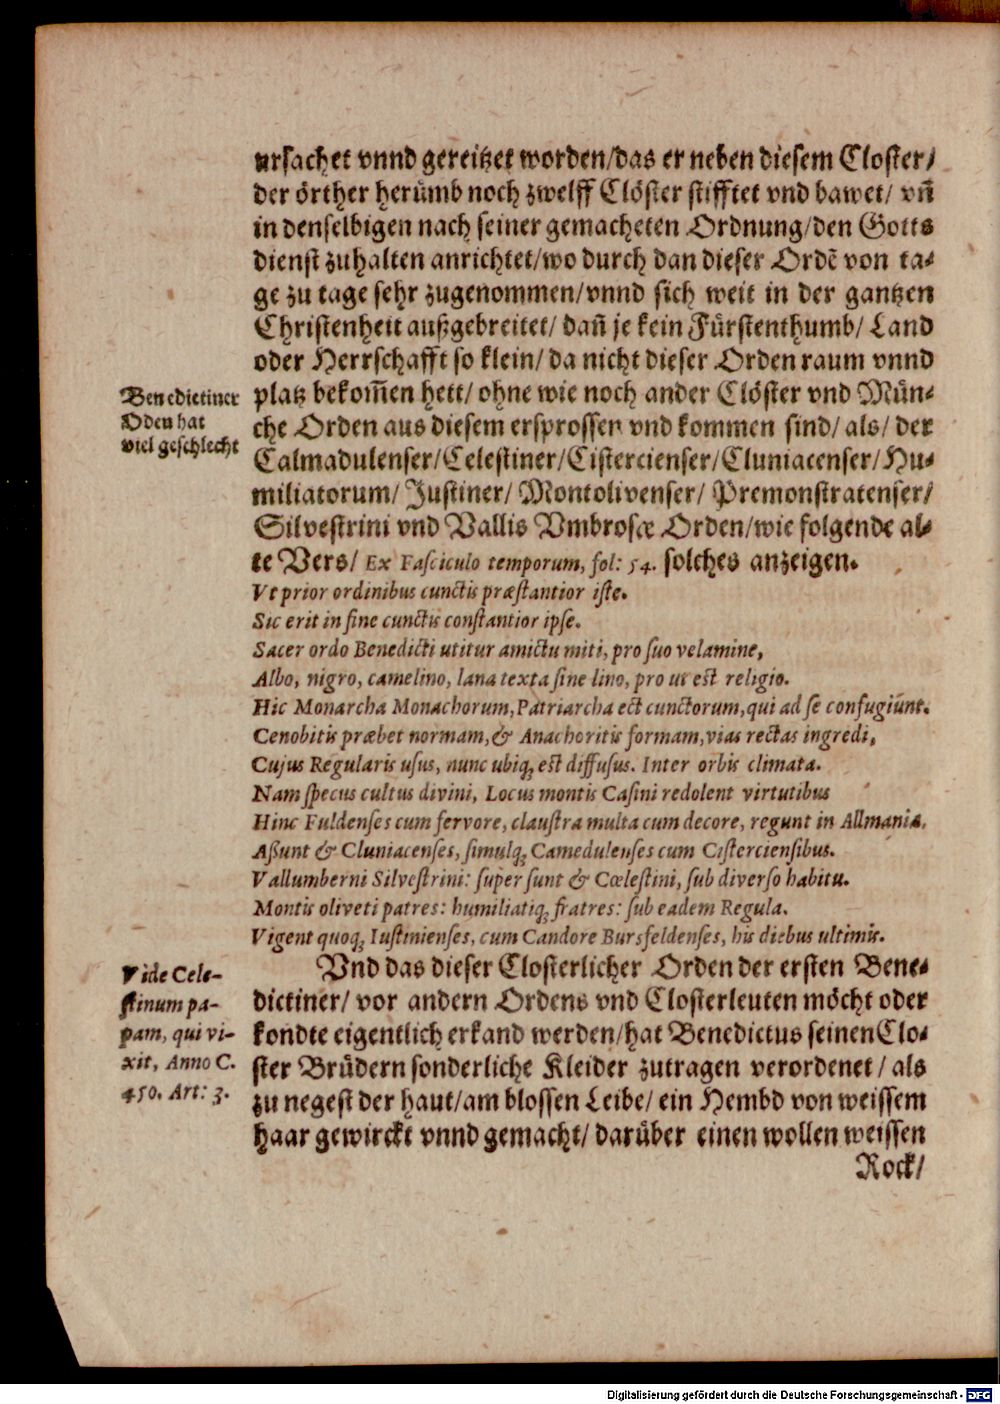 ursachet vnnd gereitzet worden/das er neben diesem Closter/
der örther herümb noch zwelff Clöster stifftet vnd bawet/ vñ
in denselbigen nach seiner gemacheten Ordnung/den Gotts
dienst zuhalten anrichtet/wo durch dan dieser Ordē von ta-
ge zu tage sehr zugenommen/vnnd sich weit in der gantzen
Christenheit außgebreitet/ dañ je kein Fürstenthumb/ Land
oder Herrschafft so klein/ da nicht dieser Orden raum vnnd
Benedictiner
Oden hat
viel geschlecht
platz bekom̃en hett/ ohne wie noch ander Clöster vnd Mün-
che Orden aus diesem ersprossen vnd kommen sind/ als/ der
Calmadulenser/Celestiner/Cistercienser/Cluniacenser/Hu-
miliatorum/ Justiner/ Montolivenser/ Premonstratenser/
Silvestrini vnd Vallis Vmbrosæ Orden/wie folgende al-
te Vers/ Ex Fasciculo temporum, fol: 54. solches anzeigen.
Vt prior ordinibus cunctis præstantior iste.
Sic erit in fine cunctis constantior ipse.
Sacer ordo Benedicti utitur amictu miti, pro suo velamine,
Albo, nigro, camelino, lana texta sine lino, pro ut est religio.
Hic Monarcha Monachorum, Patriarcha ect cunctorum, qui ad se confugiunt.
Cenobitis præbet normam, & Anachoritis formam, vias rectas ingredi,
Cujus Regularis usus, nunc ubiq; est diffusus. Inter orbis climata.
Nam specus cultus divini, Locus montis Casini redolent virtutibus
Hinc Fuldenses cum fervore, claustra multa cum decore, regunt in Allmania.
Aßunt & Cluniacenses, simulq; Camedulenses cum Cisterciensibus.
Vallumberni Silvestrini: super sunt & Cœlestini, sub diverso habitu.
Montis oliveti patres: humiliatiq; fratres: sub eadem Regula.
Vigent quoq; Iustinienses, cum Candore Bursfeldenses, his diebus ultimis.
Vide Cele-
stinum pa-
pam, qui vi-
xit, Anno C.
450. Art: 3.
Vnd das dieser Closterlicher Orden der ersten Bene-
dictiner/ vor andern Ordens vnd Closterleuten möcht oder
kondte eigentlich erkand werden/hat Benedictus seinen Clo-
ster Brüdern sonderliche Kleider zutragen verordenet/ als
zu negest der haut/am blossen Leibe/ ein Hembd von weissem
haar gewirckt vnnd gemacht/ darüber einen wollen weissen
Rock/
Digitalisierung gefördert durch die Deutsche Forschungsgemeinschaft - DFG